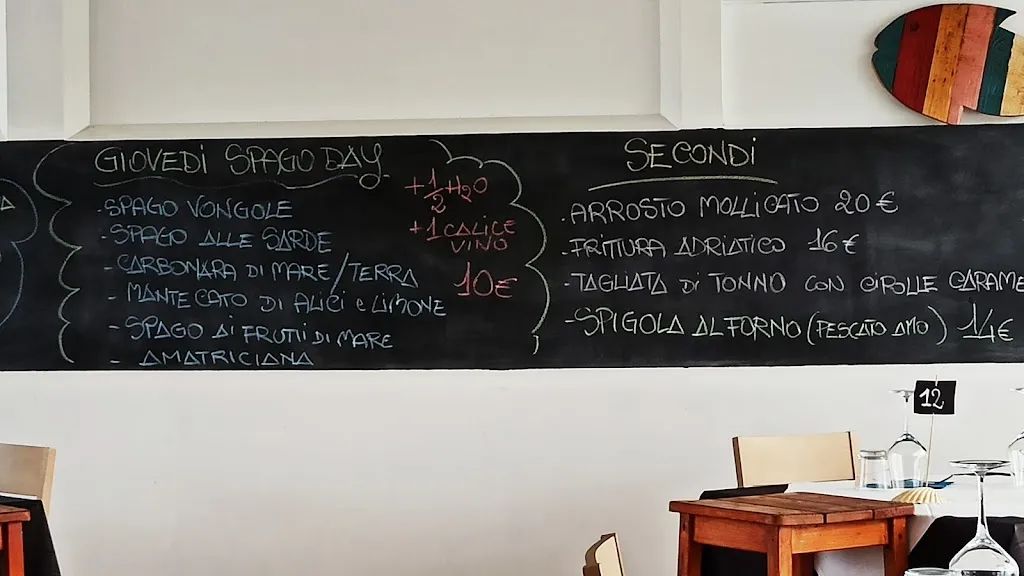 GIOVEDÌ SPAGO DAY
- SPAGO VONGOLE
- SPAGO ALLE SARDE
- CARBONARA DI MARE/TERRA
- MANTECATO DI ALICI e LIMONE
- SPAGO AI FRUTTI DI MARE
- AMATRICIANA
+ 1/2 H2O
+ 1 CALICE
VINO
10€
SECONDI
- ARROSTO MOLLICATO 20€
- FRITTURA ADRIATICO 16€
- TAGLIATA DI TONNO CON CIPOLLE CARAME
- SPIGOLA AL FORNO (PESCATO AMO) 14€
12